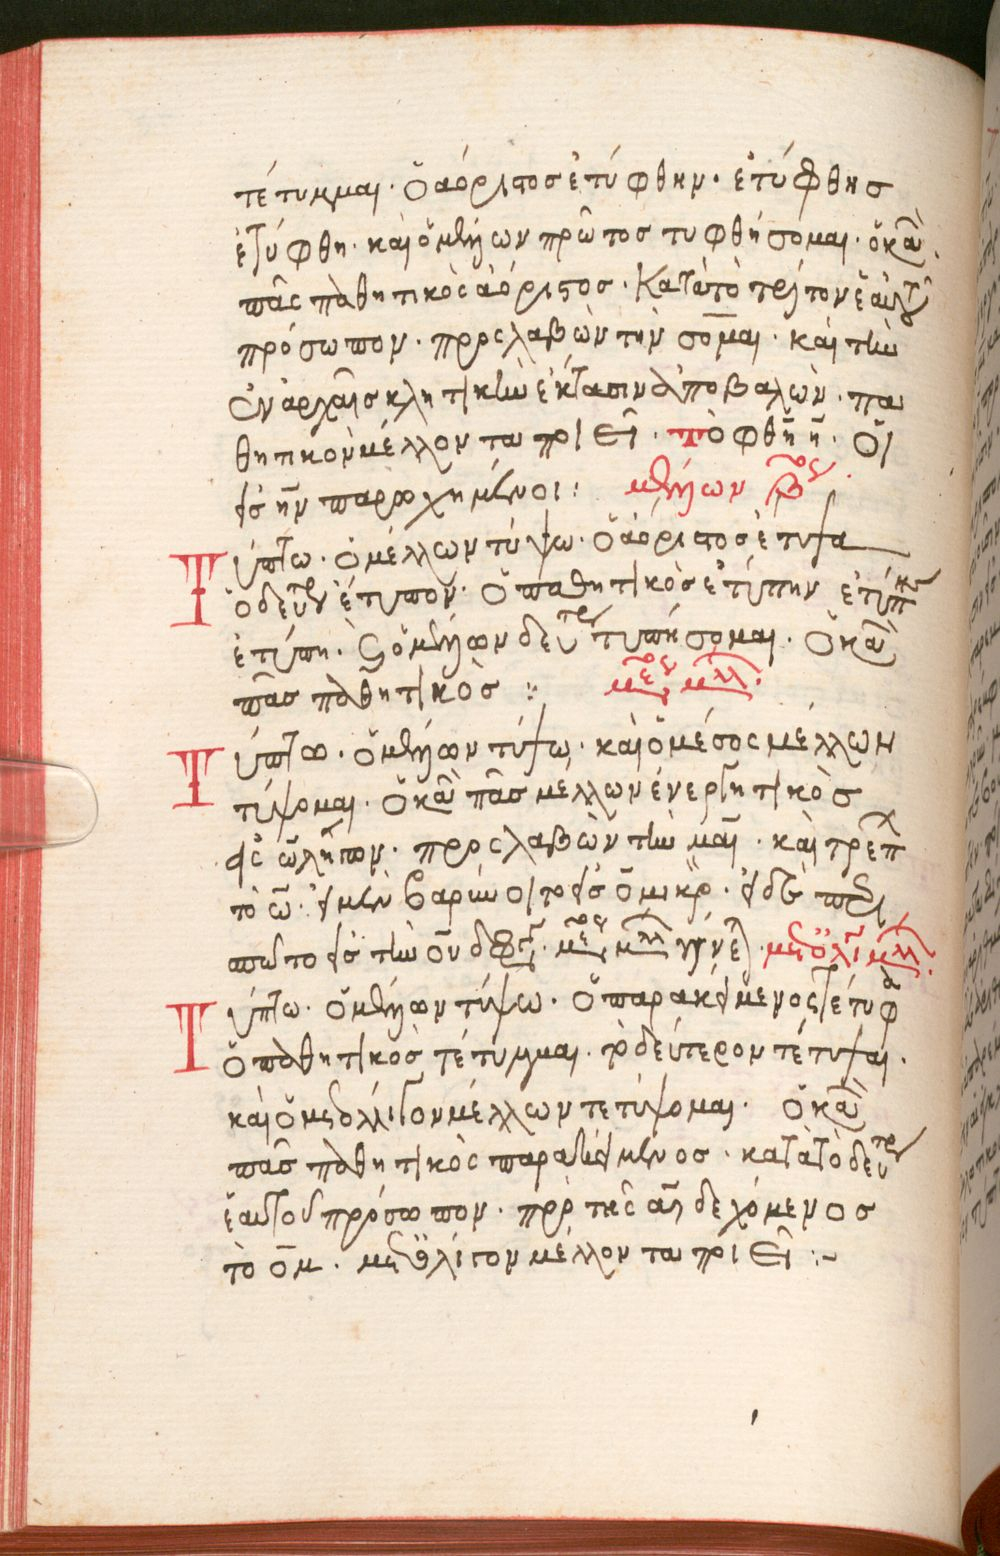 τέτυμμαι· ὁ ἀόριστος ἐτύφθην· ἐτύφθης
ἐτύφθη· καὶ ὁ μέλλων πρῶτος τυφθήσομαι· ὁ κα
πᾶς παθητικὸς ἀόριστος· κατὰ τὸ τρίτον ἑαυτοῦ
πρόσωπον· προσλαβὼν τὴν σομαι· καὶ τὴν
ἐν ἀρχαῖς κλητικὴν ἔκτασιν ἀποβαλὼν· πα
θητικὸν μέλλοντα ποιεῖ· τὸ φθῆ η· οἱ
εἰς ην παρωχημένοι: μέλλων βος
Τύπτω· ὁ μέλλων τύψω· ὁ ἀόριστος ἔτυψα
ὁ δεύτερ ἔτυπον· ὁ παθητικὸς ἐτύπην ἐτύπης
ἐτύπη· καὶ ὁ μέλλων δεύτερ τυπήσομαι· ὁ κα
πᾶς παθητικὸς: μέσος μελλ
Τύπτω· ὁ μέλλων τύψω· καὶ ὁ μέσος μέλλων
τύψομαι· ὁ κα πᾶς μέλλων ἐνεργητικὸς
εἰς ω λῆγον· προσλαβὼν τὴν μαι· καὶ τρέπ
τὸ ω· εἰ μὲν βαρύνοιτο εἰς ο μικρ· εἰ δὲ περι
σπῶτο εἰς τὴν ου δίφθ· μέσος μελλ γίνε· μετ ὀλί μελλ
Τύπτω· ὁ μέλλων τύψω· ὁ παρακείμενος τέτυφα
ὁ παθητικὸς τέτυμμαι· τὸ δεύτερον τέτυψαι·
καὶ ὁ μετ ὀλίγον μέλλων τετύψομαι· ὁ κα
πᾶς παθητικὸς παρακείμενος· κατὰ τὸ δεύτερ
ἑαυτοῦ πρόσωπον· πρὸ τῆς αι δεχόμενος
τὸ ομ· μετ ὀλίγον μέλλοντα ποιεῖ:~